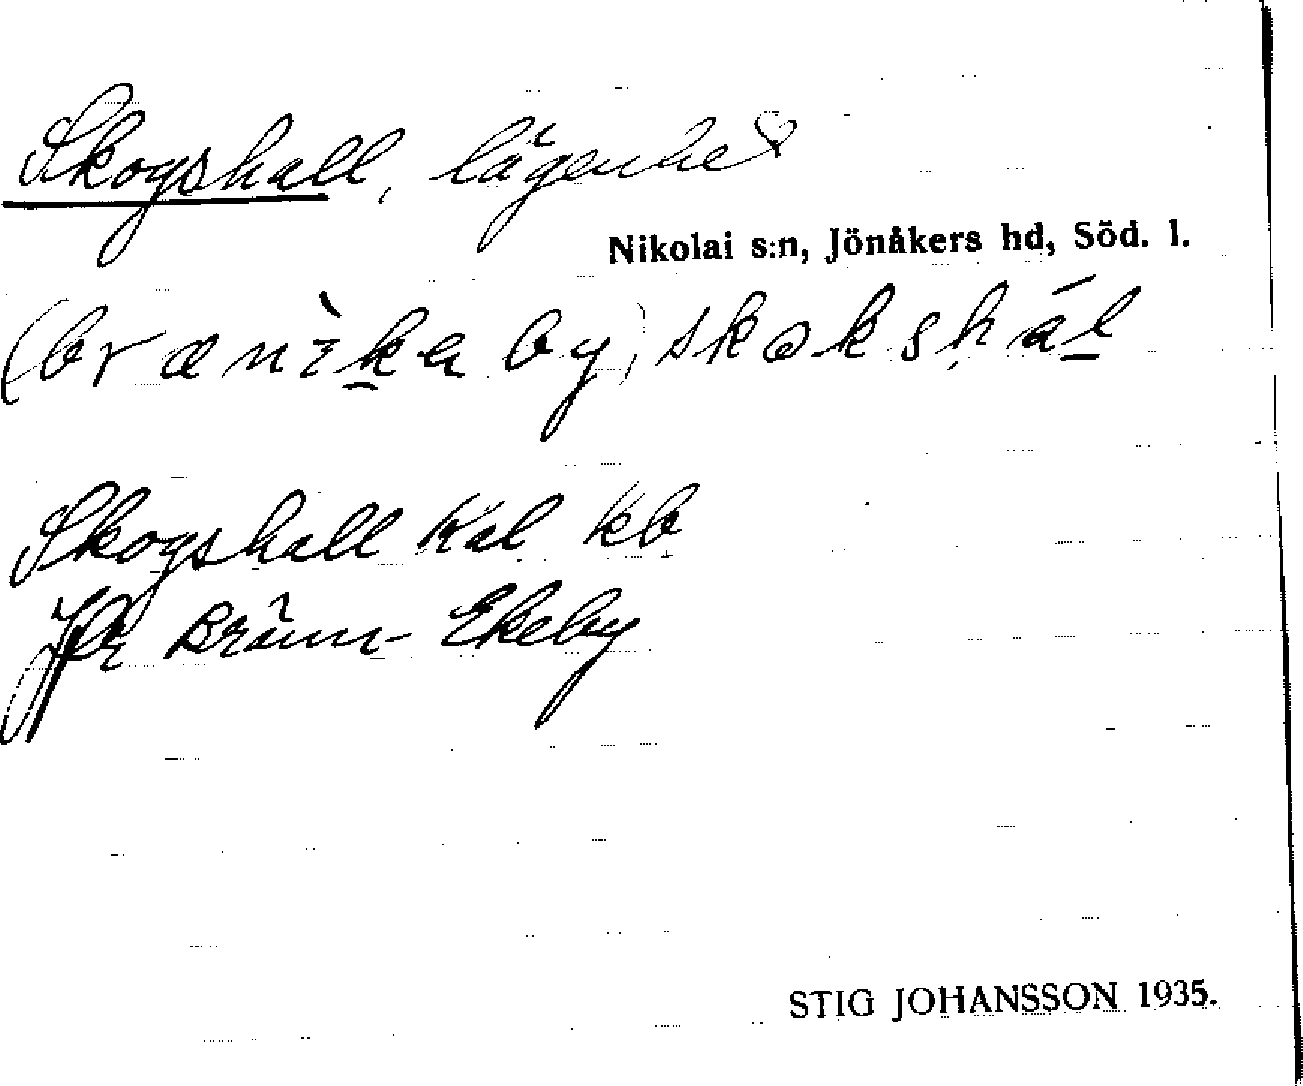 Skogshall, lägenhet
Nikolai s:n, Jönåkers hd, Söd. l.
(brænὲka by) skokshál
Skogshall Kal kb
Jfr Bränn-Ekeby
STIG JOHANSSON 1935.